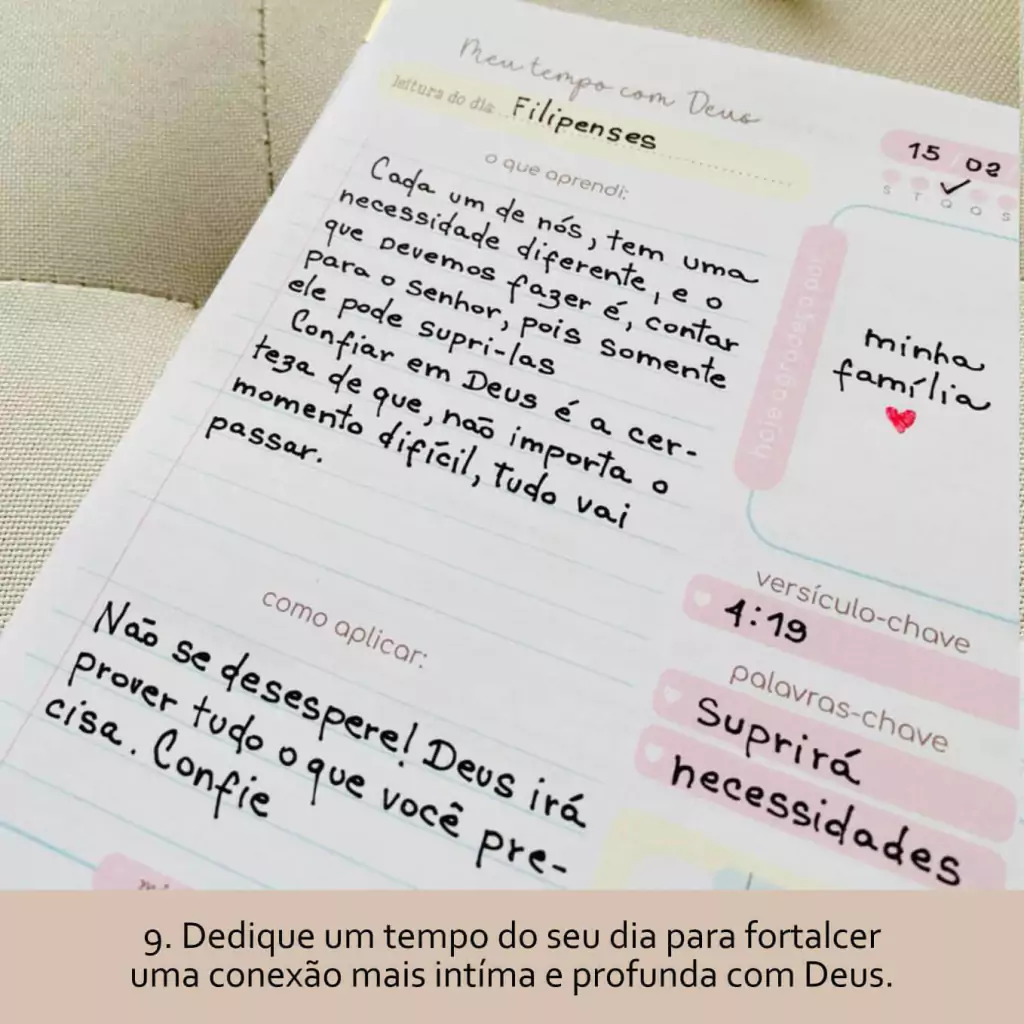 Meu tempo com Deus
leitura do dia Filipenses
15 02
S T Q Q S
o que aprendi:
Cada um de nós, tem uma
necessidade diferente, e o
que devemos fazer é, contar
para o Senhor, pois somente
ele pode supri-las
Confiar em Deus é a cer-
teza de que, não importa o
momento difícil, tudo vai
passar.
hoje agradeço por:
minha
família
versículo-chave
4:19
palavras-chave
Suprirá
necessidades
como aplicar:
Não se desespere! Deus irá
prover tudo o que você pre-
cisa. Confie
9. Dedique um tempo do seu dia para fortalcer
uma conexão mais intíma e profunda com Deus.